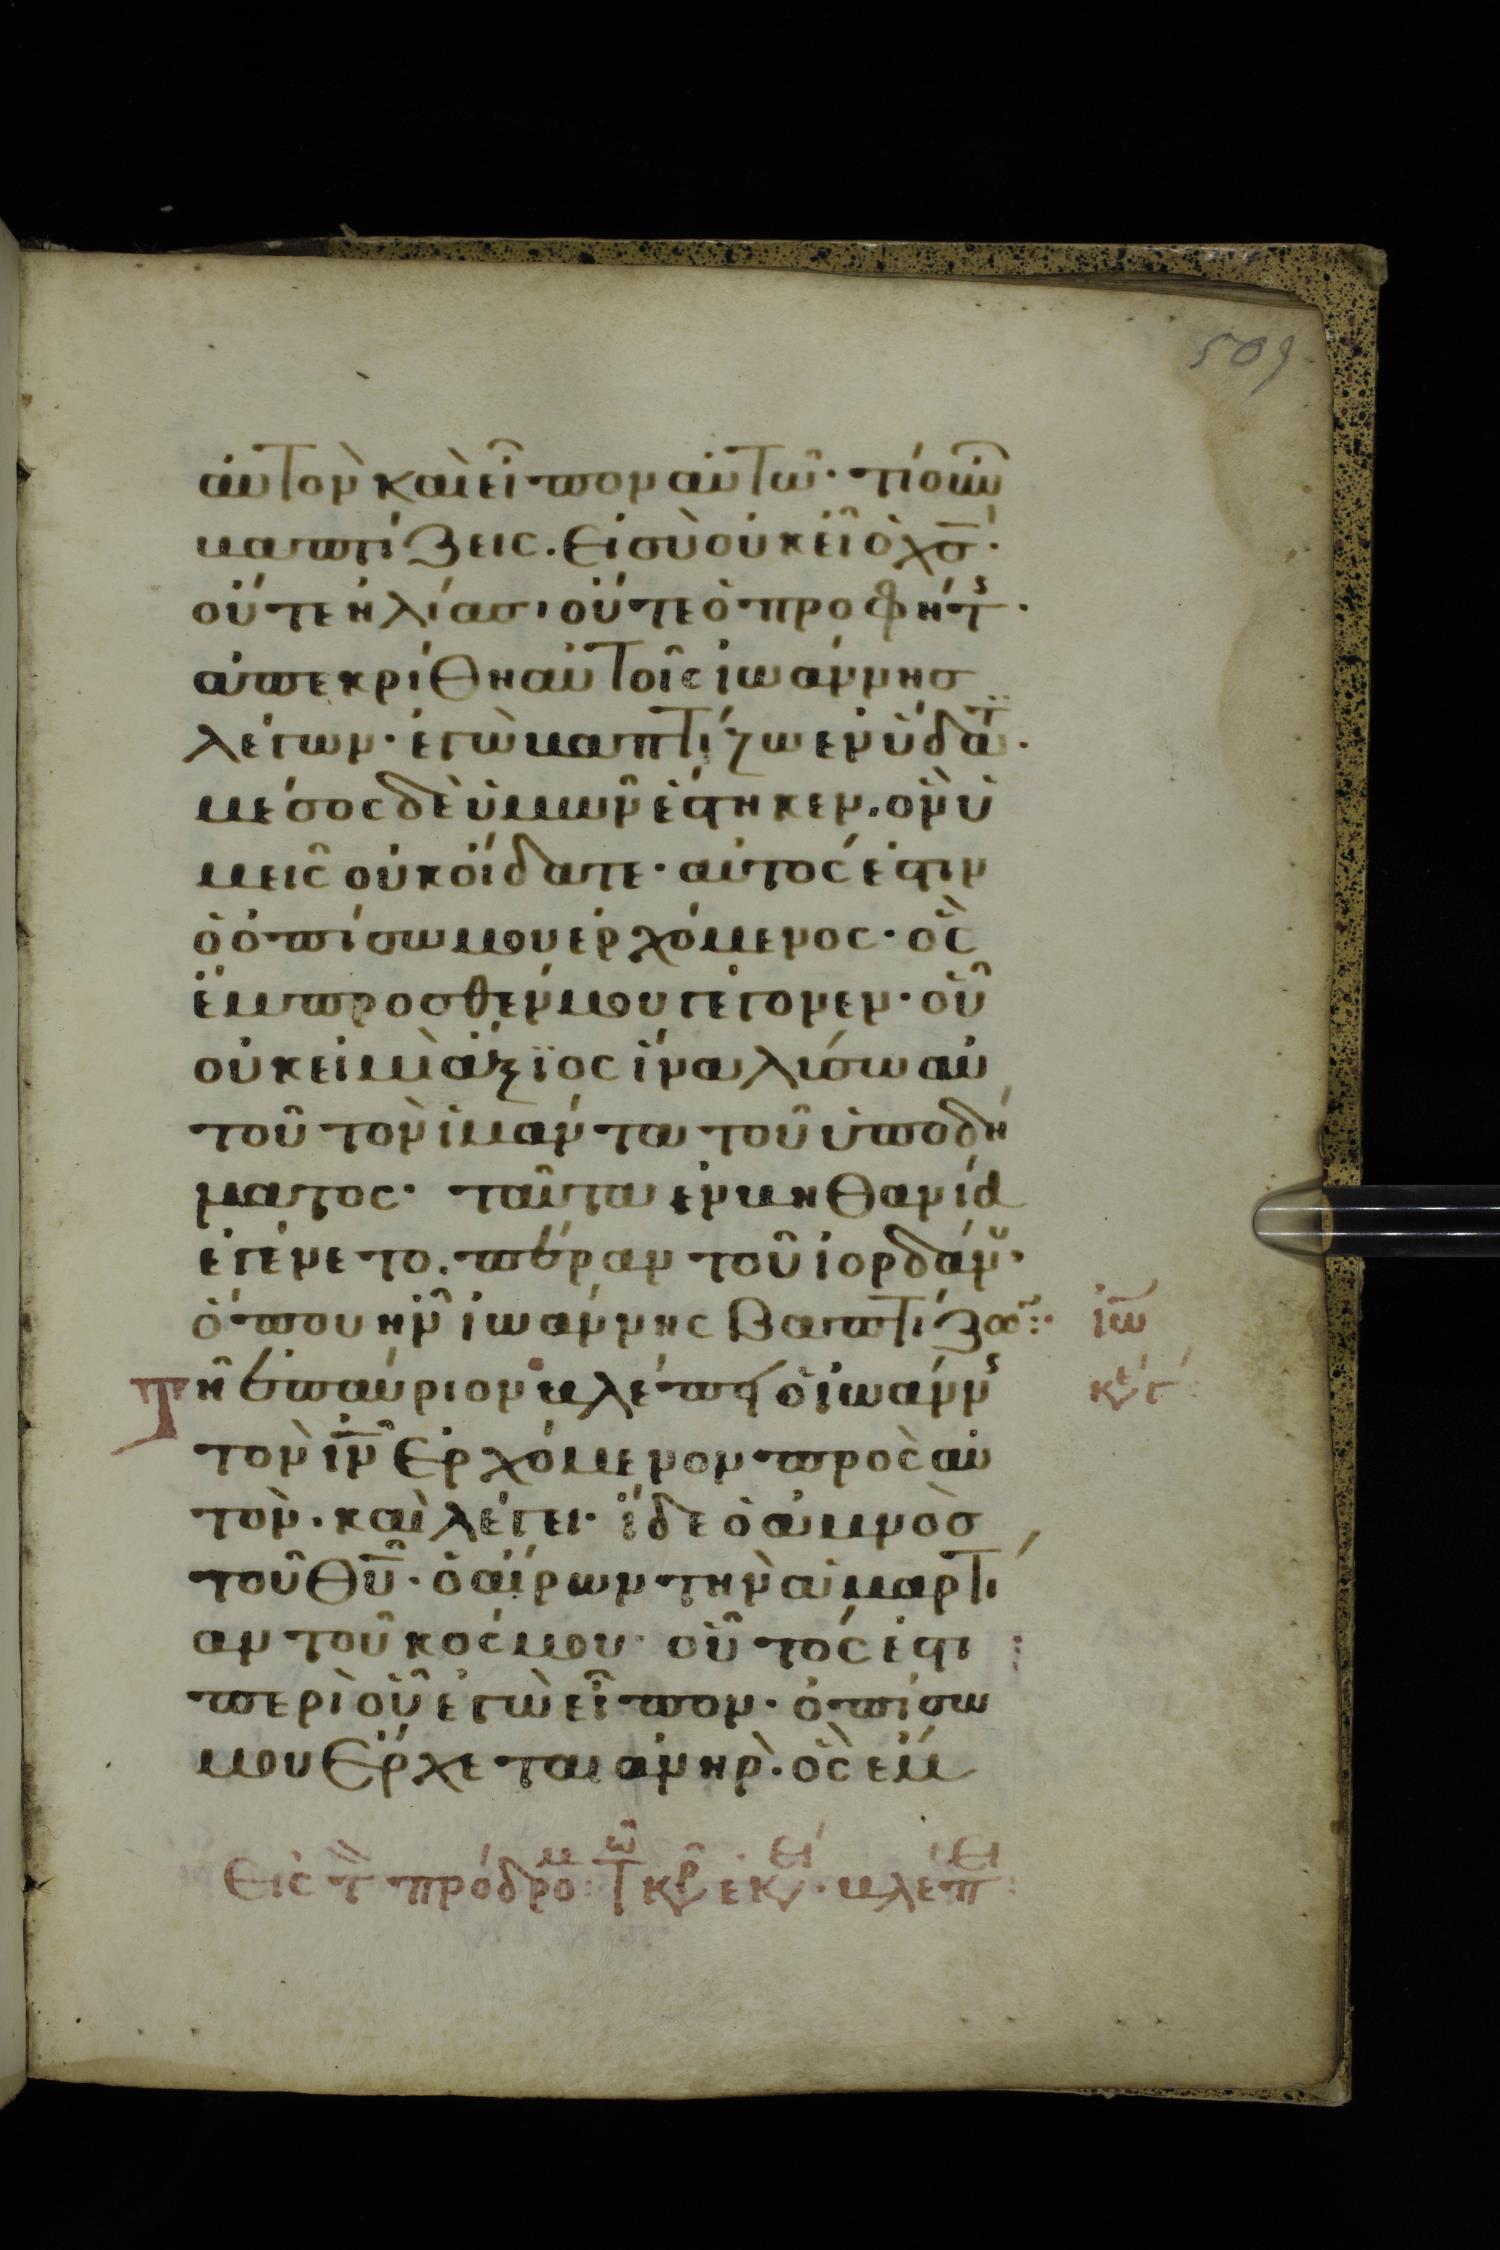 509
αὐτὸν καὶ εἶπον αὐτῶ· τί οὖν
βαπτίζεις. εἰ σὺ οὐκ εἶ ὁ χσ·
οὔτε ἠλίασ, οὔτε ὁ προφήτ·
ἀπεκρίθη αὐτοῖς ἰωάννησ
λέγων· ἐγὼ βαπτίζω ἐν ὕδατϊ·
μέσος δὲ ὑμῶν ἕστηκεν. ὃν ὑ
μεῖς οὐκ οἴδατε· αὐτός ἐστιν
ὁ ὀπίσω μου ἐρχόμενος· ὃς
ἔμπροσθέν μου γέγονεν· οὗ
οὐκ εἰμὶ ἄξϊος ἵνα λύσω αὐ
τοῦ τὸν ἱμάντα τοῦ ὑποδή
ματος· ταῦτα ἐν βηθανία
ἐγένετο. πέραν τοῦ ἰορδάν·
ὅπου ἦν ἰωάννης βαπτίζω:·
ἰω
Τῆ ἐπαύριον βλέπει ὁ ἰωάνν
κε γ:
τὸν ιν ἐρχόμενον πρὸς αὐ
τὸν. καὶ λέγει· ἴδε ὁ ἀμνὸσ
τοῦ θυ· ὁ αἴρων τὴν ἁμαρτί
αν τοῦ κόσμου· οὗτός ἐστι :
περὶ οὗ ἐγὼ εἶπον· ὀπίσω
μου ἔρχεται ἀνὴρ. ὃς ἔμ
Εἰς τ πρόδρομ: τῶ κυρ ἐκει· βλέπει: